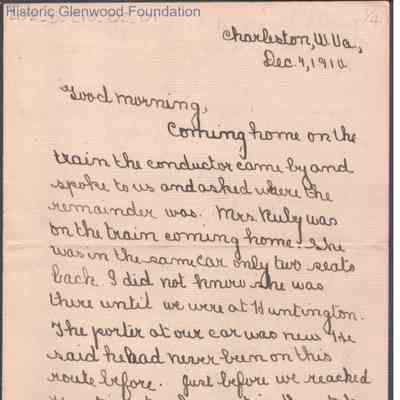 Historic Glenwood Foundation
Charleston, W. Va.,
Dec. 9, 1910.
Good morning,
Coming home on the
train the conductor came by and
spoke to us and asked where the
remainder was. Mrs. Ruby was
on the train coming home. She
was in the same car only two seats
back. I did not know she was
there until we were at Huntington.
The porter at our car was new. He
said he had never been on this
route before. Just before we reached